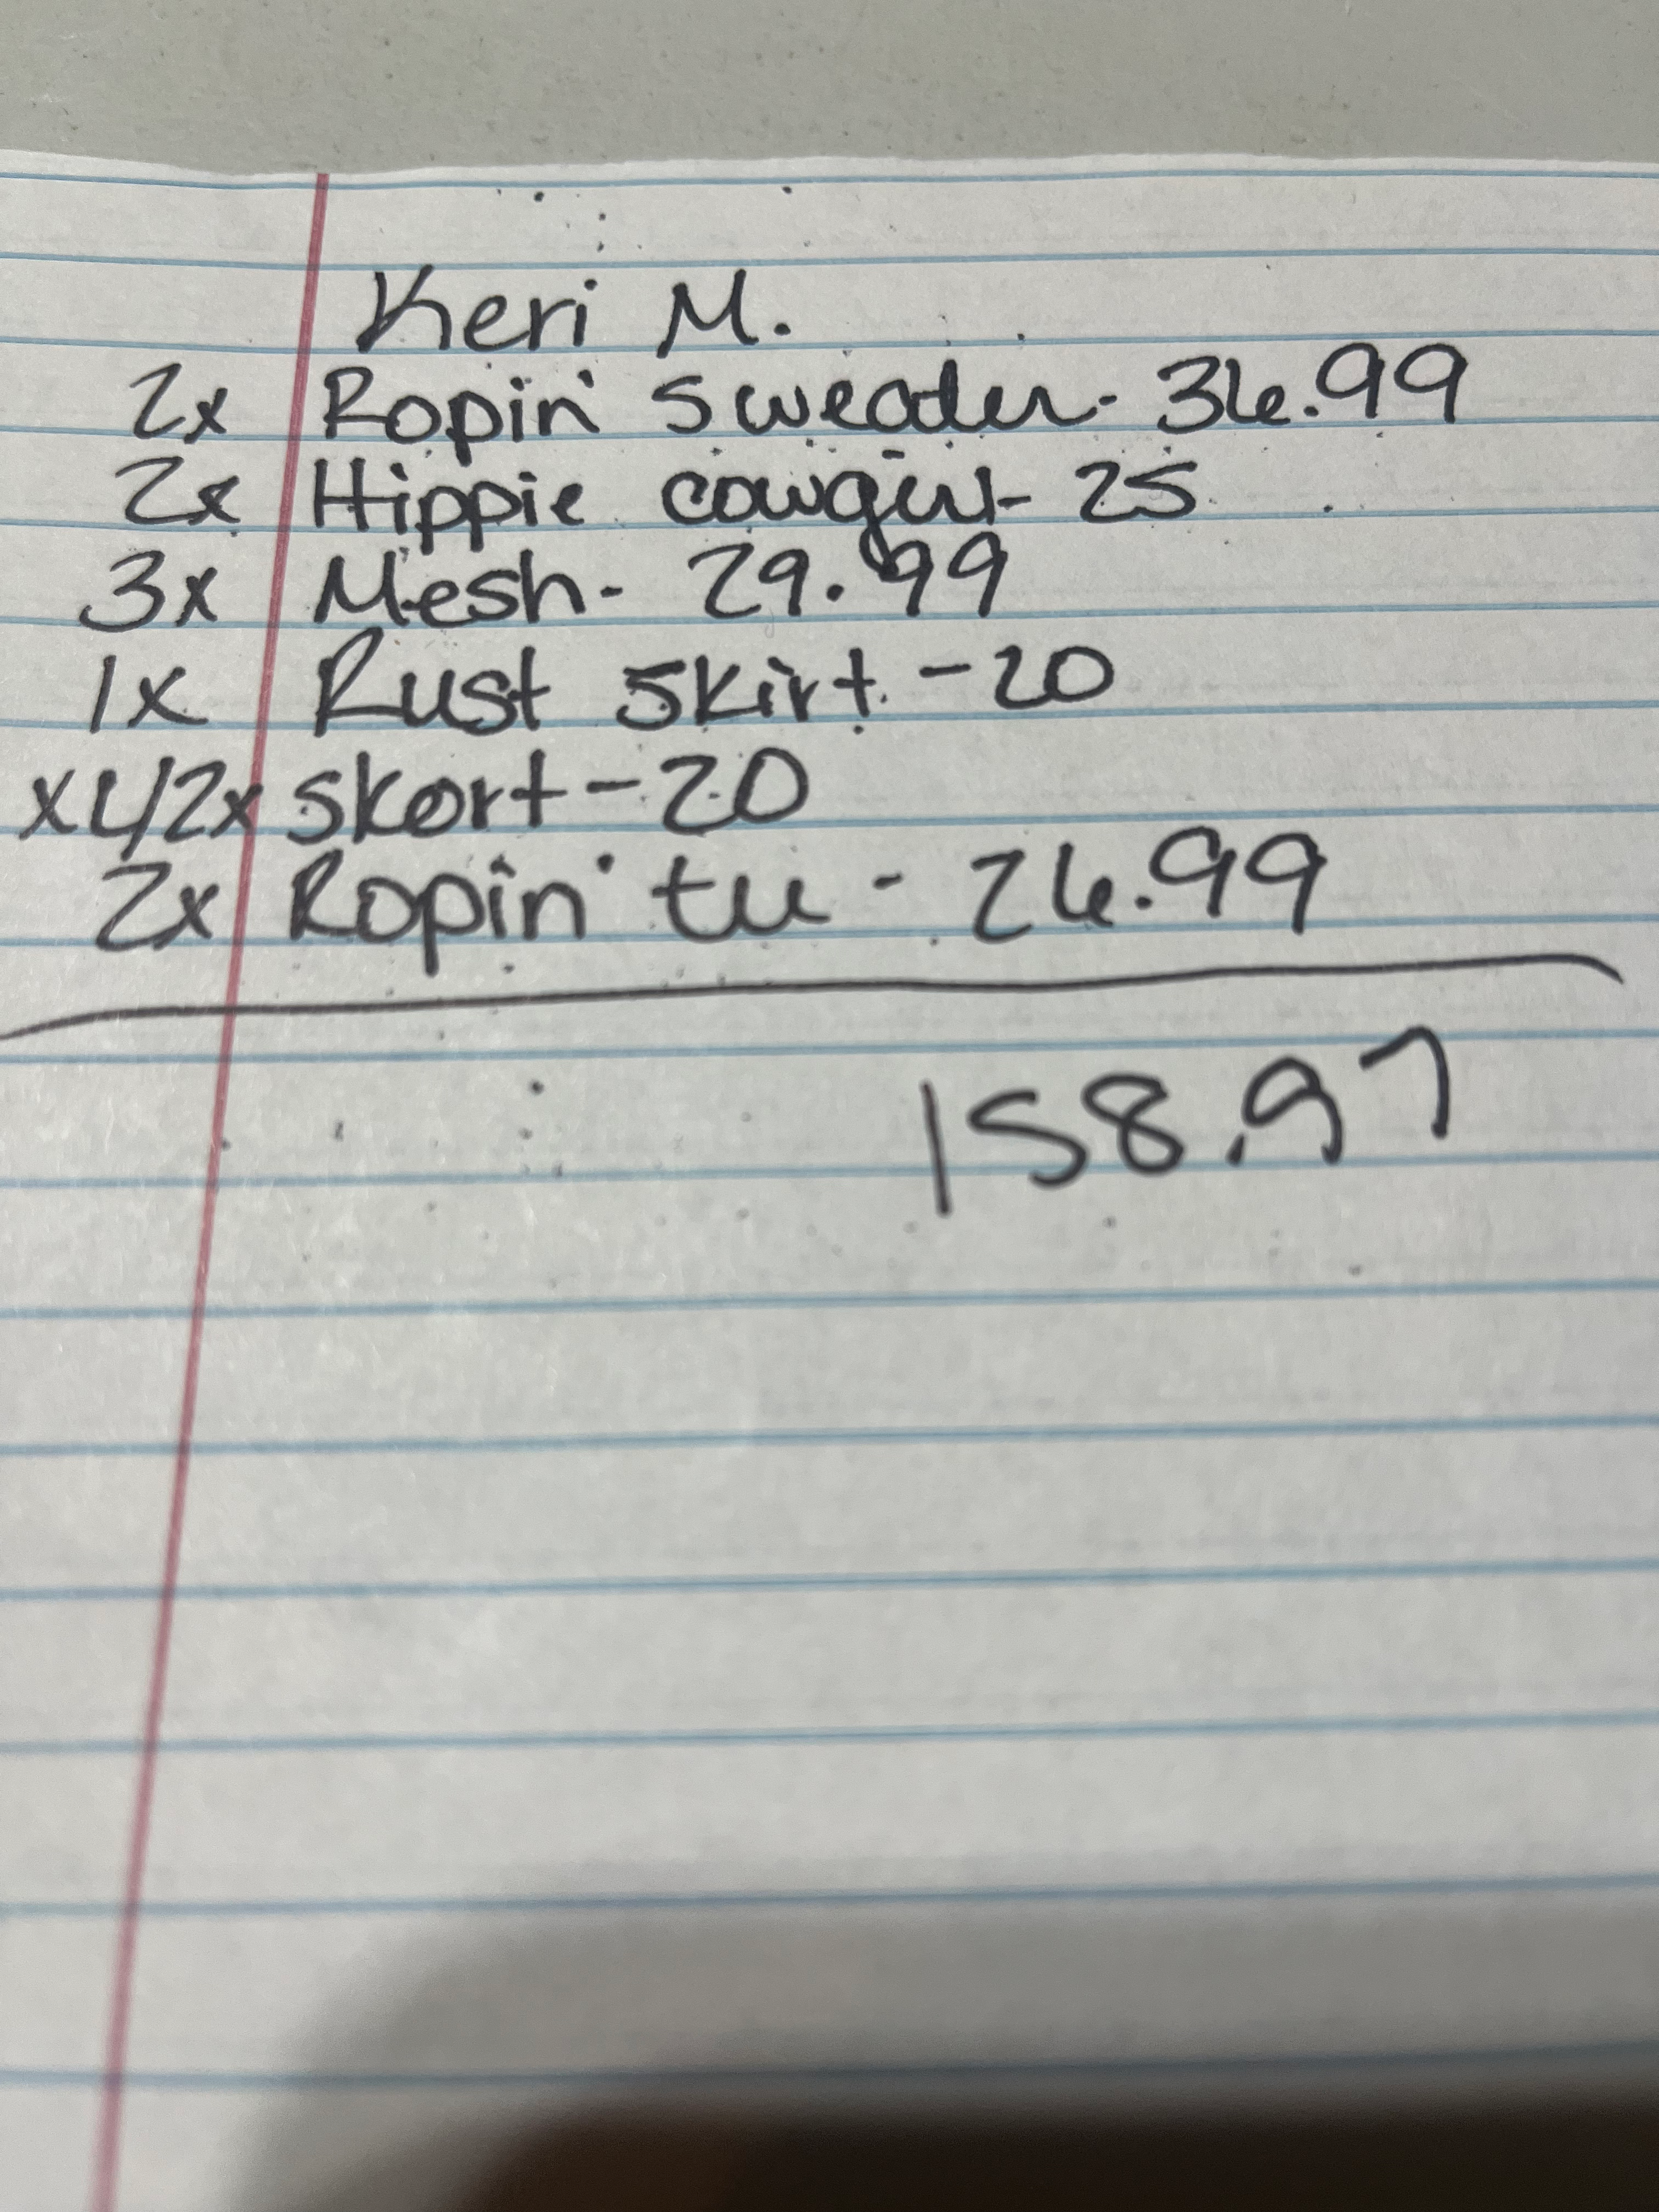 Keri M.
2x Ropin' sweader - 36.99
2x Hippie cowgirl - 25
3x Mesh - 29.99
1x Rust skirt - 20
XL/2x skort - 20
2x Ropin' tee - 26.99
158.97